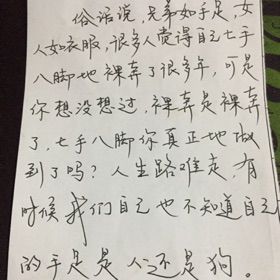 俗话说，兄弟如手足，女
人如衣服，很多人觉得自己七手
八脚地裸奔了很多年，可是
你想没想过，裸奔是裸奔
了，七手八脚你真正地做
到了吗？人生路难走，有
时候我们自己也不知道自己
的手足是人还是狗。